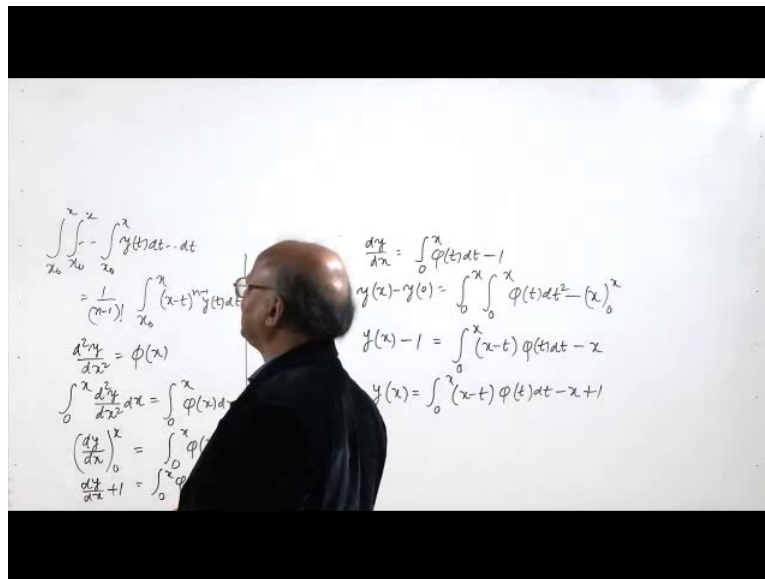 ∫_{x₀}^{x} ∫_{x₀}^{x} -- ∫_{x₀}^{x} y(t) dt -- dt
= 1/(n-1)! ∫_{x₀}^{x} (x-t)^{n-1} y(t) dt
d²y/dx² = φ(x)
∫_0^x d²y/dx² dx = ∫_0^x φ(x) d
(dy/dx)_0^x = ∫_0^x φ(
dy/dx + 1 = ∫_0^x φ
dy/dx = ∫_0^x φ(t) dt - 1
y(x) - y(0) = ∫_0^x ∫_0^x φ(t) dt² - (x)_0^x
y(x) - 1 = ∫_0^x (x-t) φ(t) dt - x
y(x) = ∫_0^x (x-t) φ(t) dt - x + 1